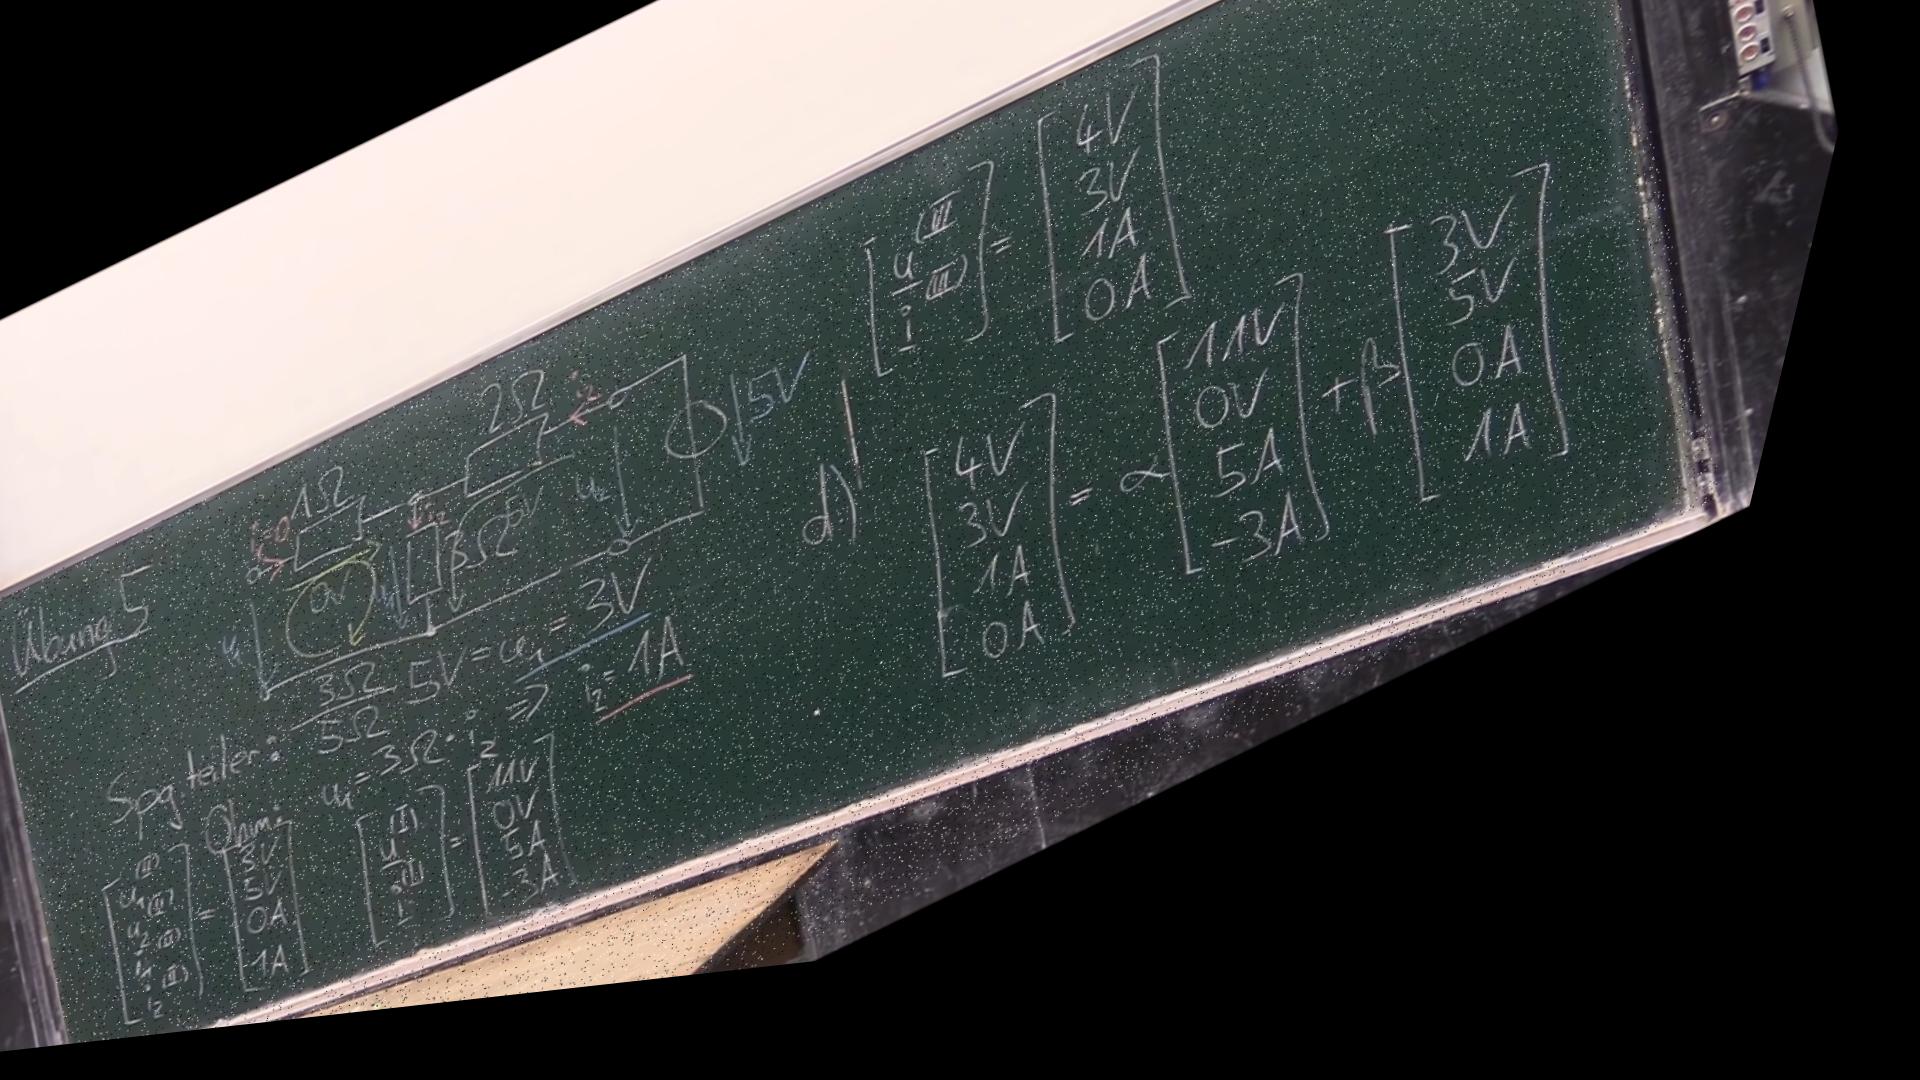 Übung 5
i₁=0
1Ω
2Ω
i₂
5V
0V
u₁
3Ω
5V
u₂
Spgteiler: 3Ω/5Ω 5V = u₁ = 3V
Ohm: u₁ = 3Ω · i₂ ⇒ i₂ = 1A
[u₁(II) u₂(II) i₁(II) i₂(II)] = [3V 5V 0A 1A]
[u(I) i(I)] = [11V 0V 5A -3A]
[u(III) i(III)] = [4V 3V 1A 0A]
d) [4V 3V 1A 0A] = α [11V 0V 5A -3A] + β [3V 5V 0A 1A]